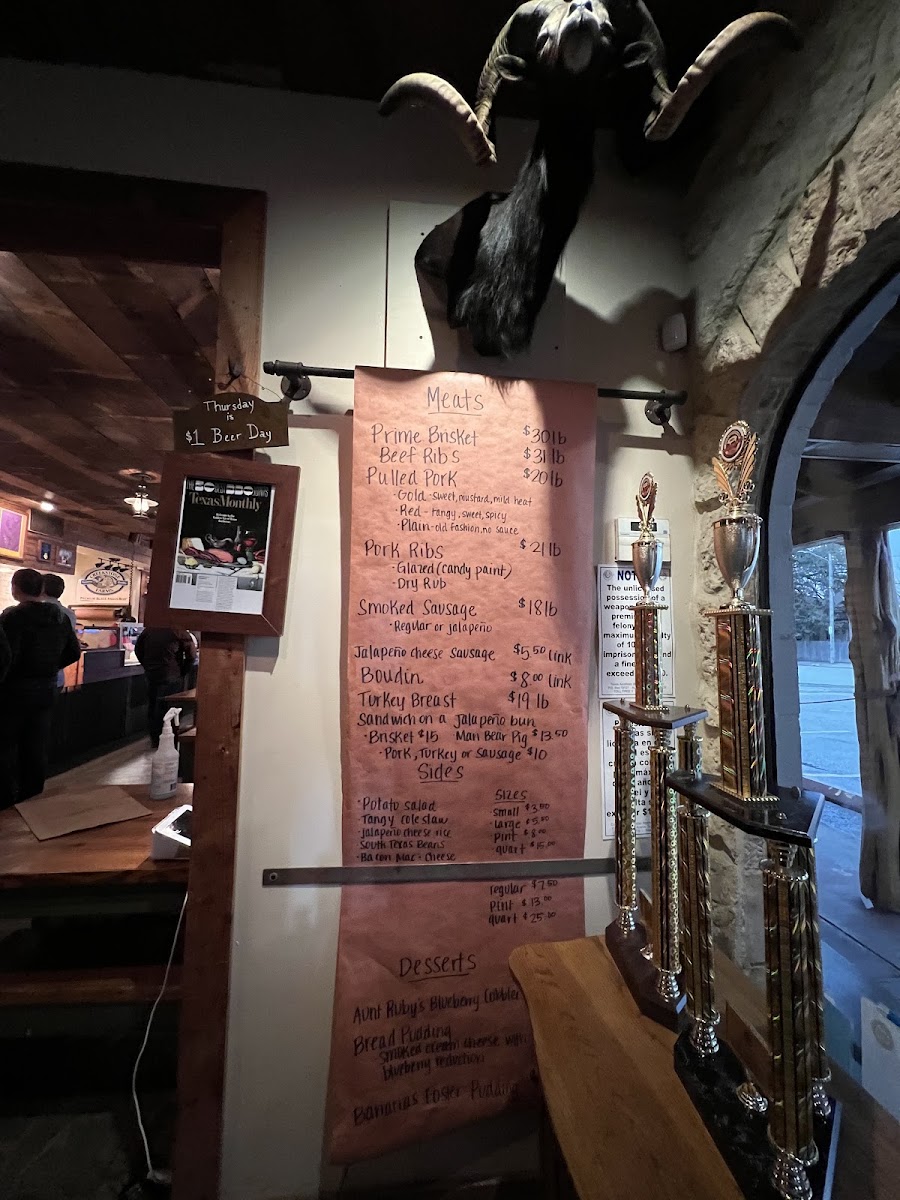 Thursday
is
$1 Beer Day
TexasMonthly
Meats
Prime Brisket $30 lb
Beef Ribs $31 lb
Pulled Pork $20 lb
·Gold -sweet, mustard, mild heat
·Red - tangy, sweet, spicy
·Plain-old fashion, no sauce
Pork Ribs $21 lb
·Glazed (candy paint)
·Dry Rub
Smoked Sausage $18 lb
·Regular or jalapeño
Jalapeño cheese sausage $5.50 link
Boudin $8.00 link
Turkey Breast $19 lb
Sandwich on a jalapeño bun
·Brisket $15 Man Bear Pig $13.50
·Pork, Turkey or Sausage $10
Sides
·Potato salad
Tangy cole slaw
jalapeño cheese rice
South Texas Beans
·Bacon Mac + Cheese
Sizes
small $3.00
·large $5.00
Pint $8.00
quart $15.00
regular $7.50
Pint $13.00
quart $25.00
Desserts
Aunt Ruby's Blueberry Cobbler
Bread Pudding
smoked cream cheese with
blueberry reduction
Bananas Foster Pudding
The
possession of a
felony
of 10
a fine